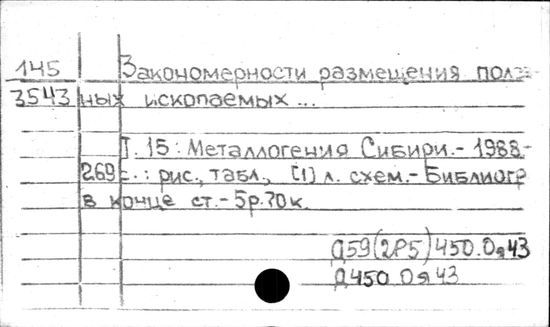 145 Закономерности размещения полез-
3543 ных ископаемых ...
Т. 15: Металлогения Сибири.- 1988.-
269 с.: рис., табл., [1] л. схем.- Библиогр.
в конце ст.- 5р.70к.
Д59(2Р5)450.0я43
Д450.0я43